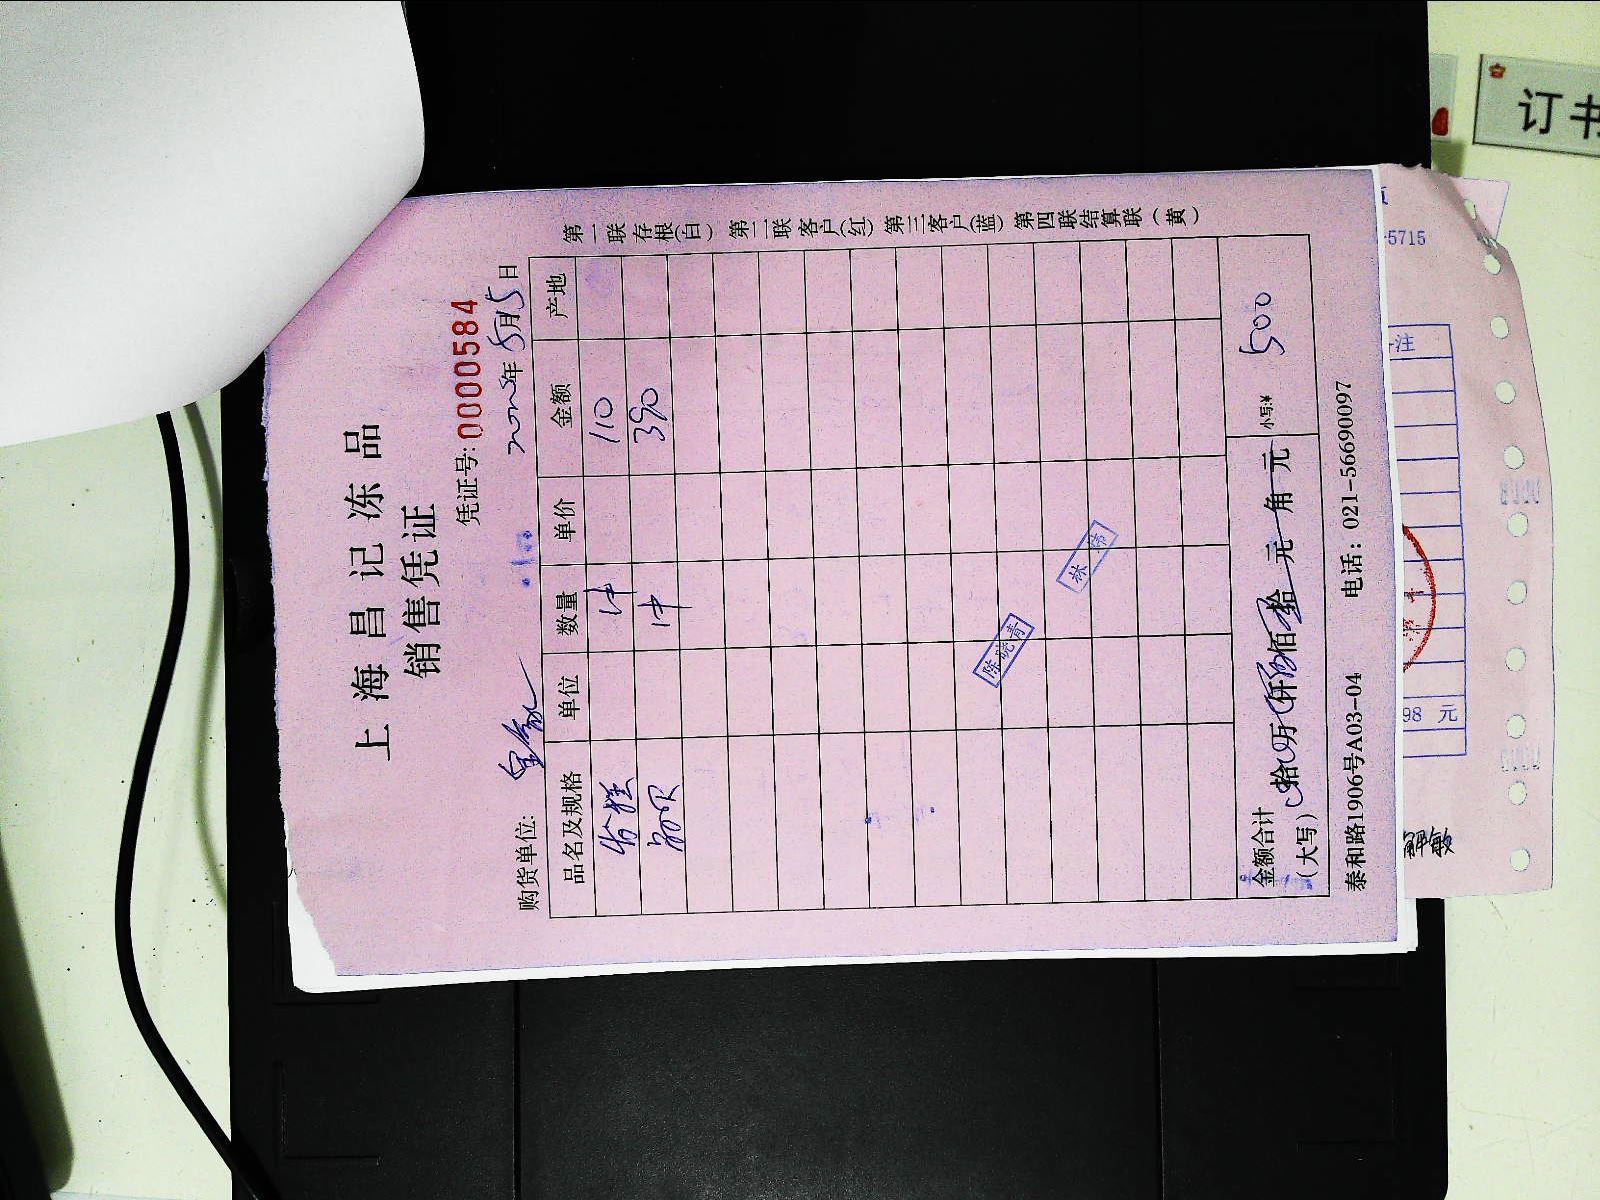 上海昌记冻品
销售凭证
凭证号: 0000584
购货单位:
年 5月5日
品名及规格 单位 数量 单价 金额 产地
1件 110
1件 390
陈晓青
林
金额合计
(大写) 拾 万 仟 佰 拾 元 角 元 小写:¥ 500
泰和路1906号A03-04 电话: 021-56690097
第一联存根(白) 第二联客户(红) 第三客户(蓝) 第四联结算联(黄)
订书
-5715
注
98 元